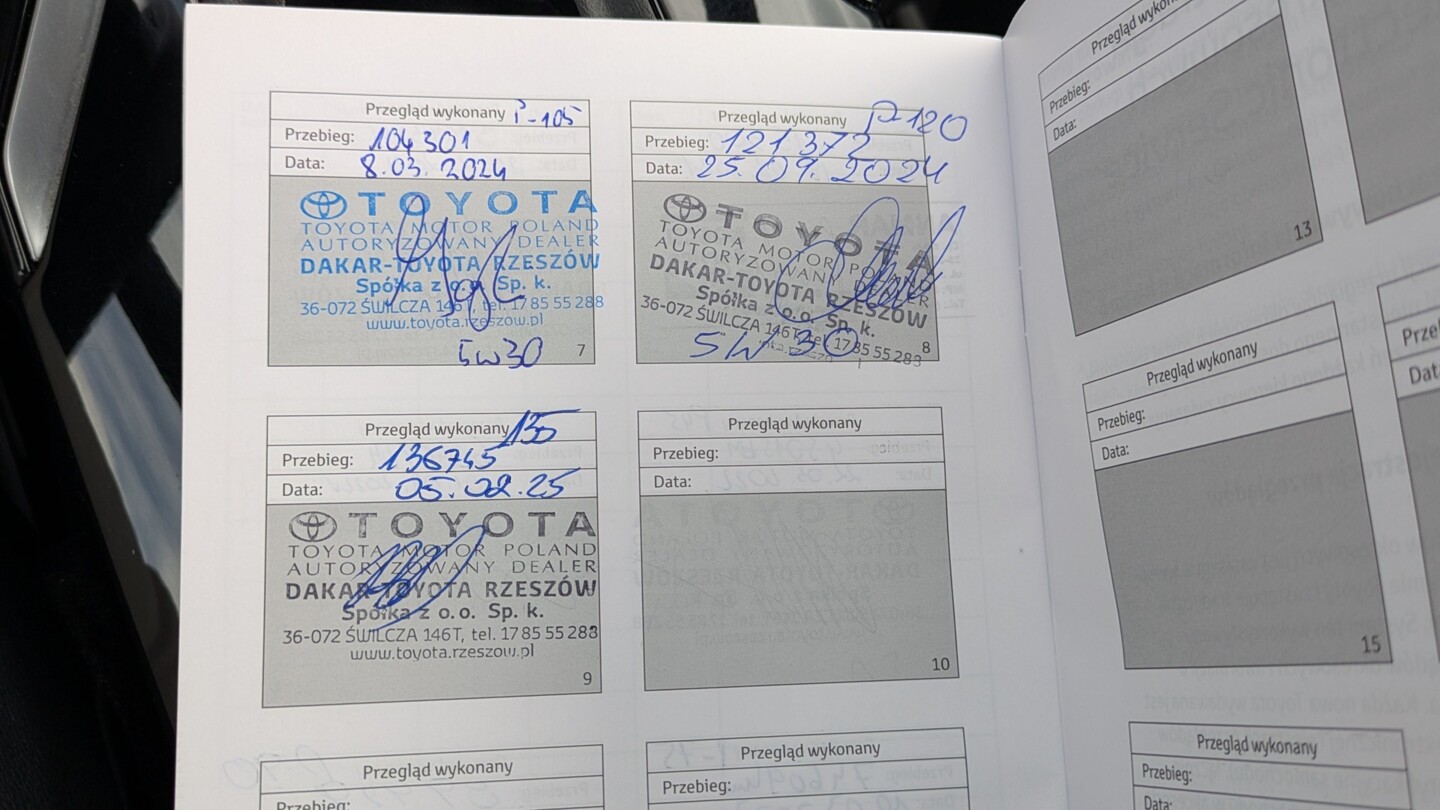 Przegląd wykonany P-105
Przebieg: 104301
Data: 8.03.2024
TOYOTA
TOYOTA MOTOR POLAND
AUTORYZOWANY DEALER
DAKAR-TOYOTA RZESZÓW
Spółka z o.o. Sp. k.
36-072 ŚWILCZA 146T, tel. 17 85 55 288
www.toyota.rzeszow.pl
5W30 7
Przegląd wykonany P-120
Przebieg: 121372
Data: 25.09.2024
TOYOTA
TOYOTA MOTOR POLAND
AUTORYZOWANY DEALER
DAKAR-TOYOTA RZESZÓW
Spółka z o.o. Sp. k.
36-072 ŚWILCZA 146T, tel. 17 85 55 288
5W30 8
Przegląd wykonany 135
Przebieg: 136745
Data: 05.02.25
TOYOTA
TOYOTA MOTOR POLAND
AUTORYZOWANY DEALER
DAKAR-TOYOTA RZESZÓW
Spółka z o.o. Sp. k.
36-072 ŚWILCZA 146T, tel. 17 85 55 288
www.toyota.rzeszow.pl
9
Przegląd wykonany
Przebieg:
Data:
10
Przegląd wykonany
Przebieg:
Przegląd wykonany
Przebieg:
Przegląd
Przebieg:
Data:
13
Przegląd wykonany
Przebieg:
Data:
15
Data
Przegląd wykonany
Przebieg:
Data: